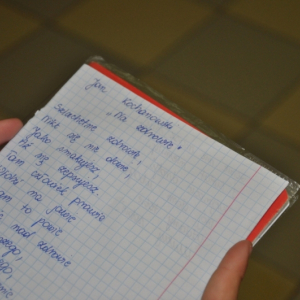 Jan Kochanowski
"Na zdrowie"
Szlachetne zdrowie,
Nikt się nie dowie,
Jako smakujesz
Aż się zepsujesz
Tam człowiek prawie
Widzi na jawie
am to powie
nad zdrowie